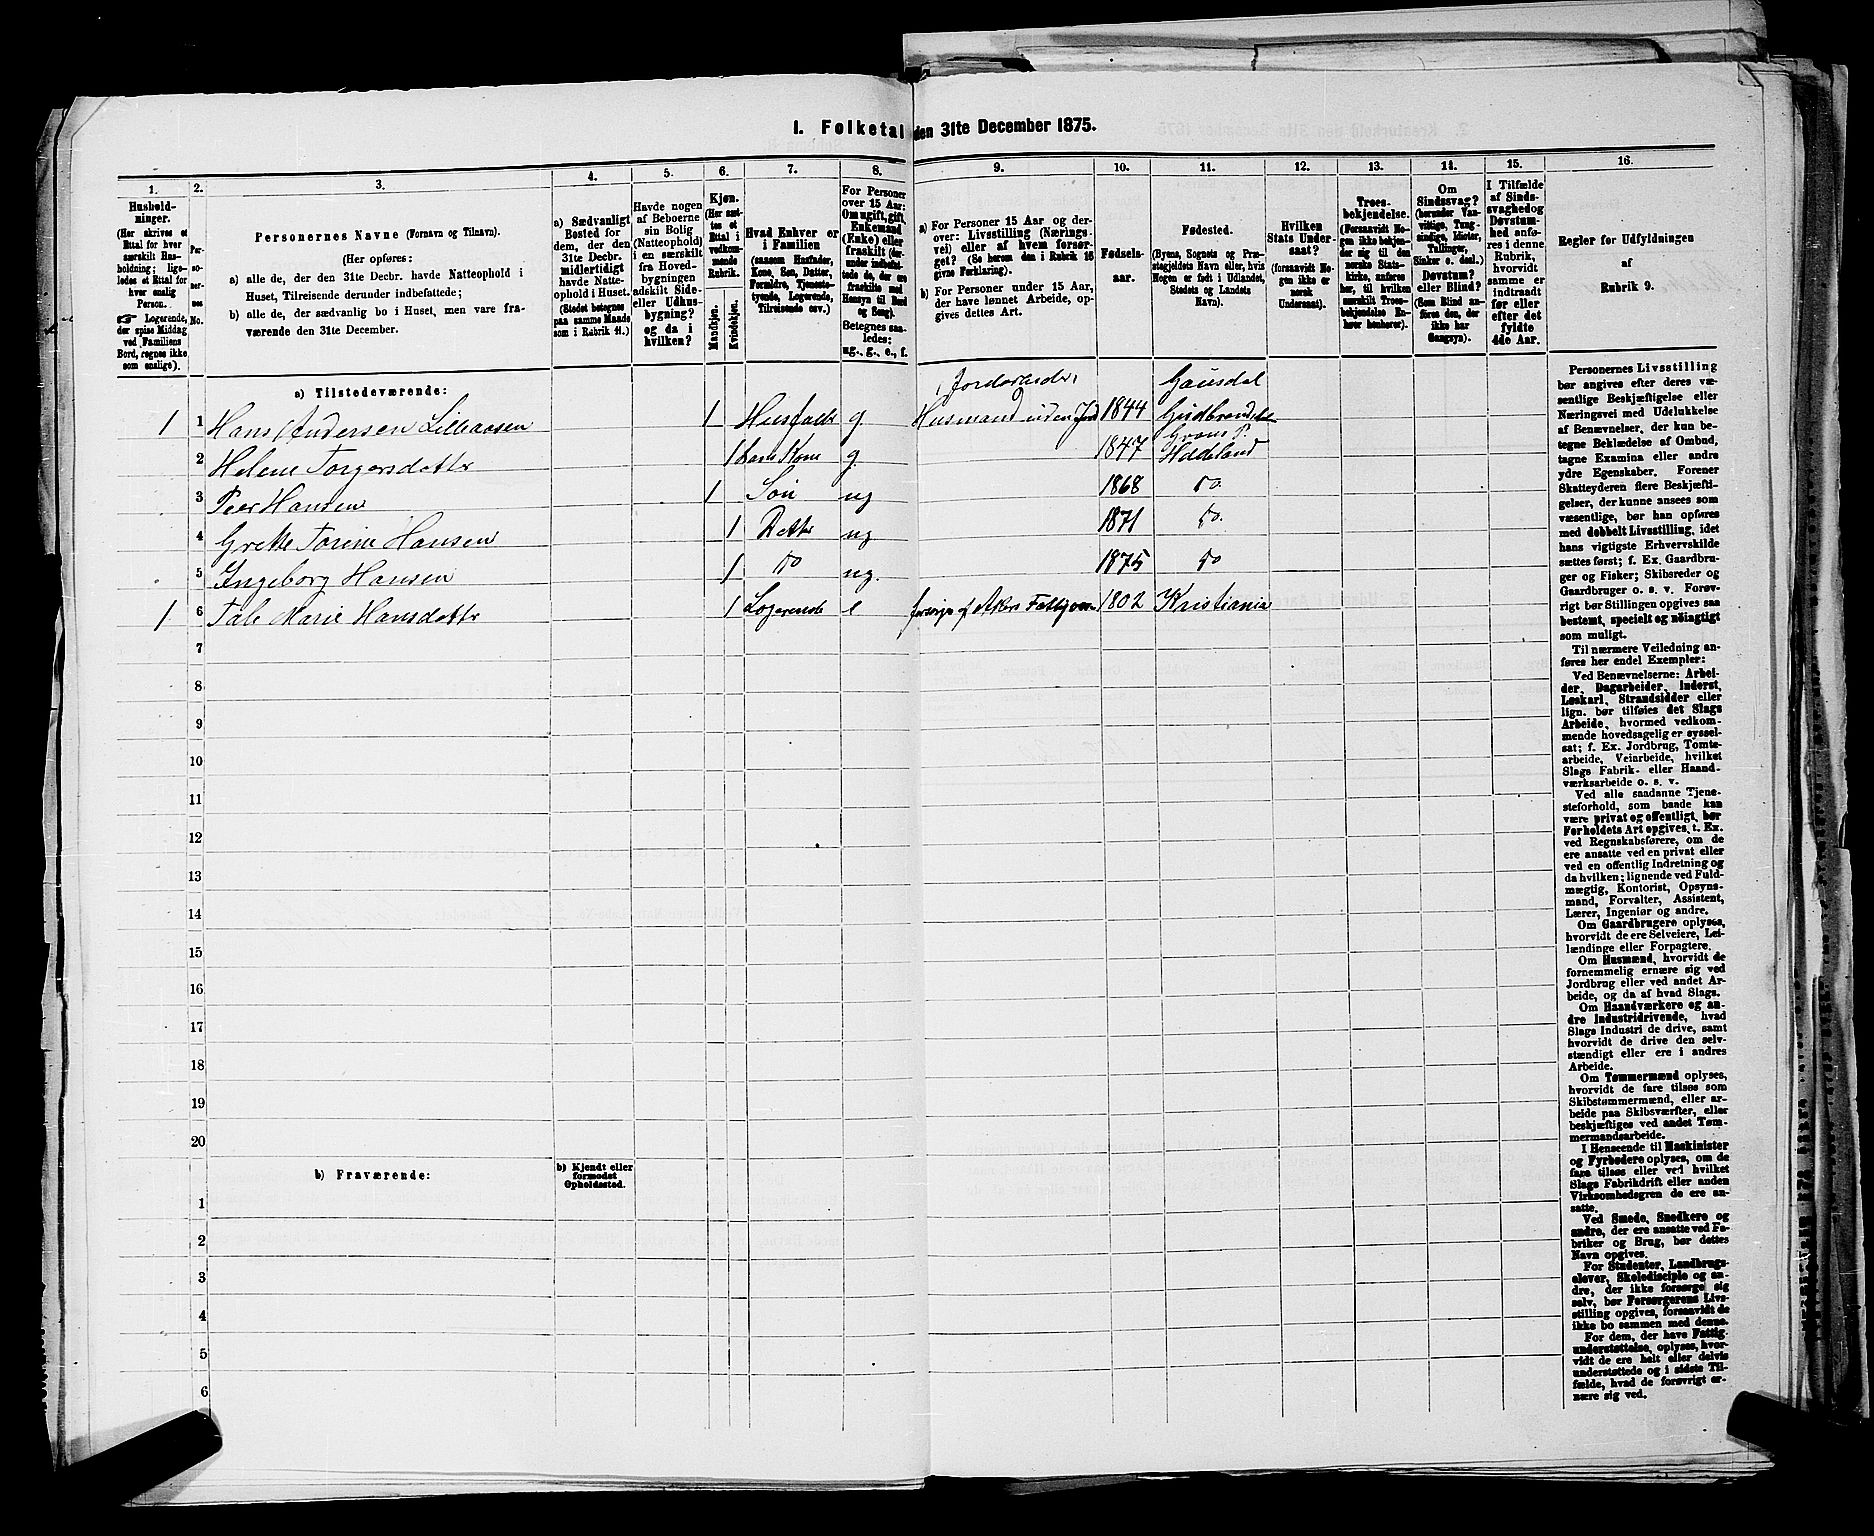 1. Folketal den 31te December 1875.
1. 2. 3. 4. 5. 6. 7. 8. 9. 10. 11. 12. 13. 14. 15. 16.
Hushold-
ninger.
(Her skrives et
Ettal for hver
særskilt Hus-
holdning; lige-
ledes et Ettal for
hver enslig
Person.
☞ Logerende,
der spise Middag
ved Familiens
Bord, regnes ikke
som enslige).
Per-
so-
ner-
nes
No.
Personernes Navne (Fornavn og Tilnavn).
(Her opføres:
a) alle de, der den 31te Decbr. havde Natteophold i
Huset, Tilreisende derunder indbefattede;
b) alle de, der sædvanlig bo i Huset, men vare fra-
værende den 31te December.
a) Sædvanligt
Bosted for
dem, der den
31te Decbr.
midlertidigt
havde Natte-
ophold i Huset.
(Stedet betegnes
paa samme Maade
som i Rubrik 11.)
Havde nogen
af Beboerne
sin Bolig
(Natteophold)
i en særskilt
fra Hoved-
bygningen
adskilt Side-
eller Udhus-
bygning?
og da i
hvilken?
Kjøn.
(Her sæt-
tes et
Ettal i
vedkom-
mende
Rubrik.
Mandkjøn.
Kvindekjøn.
Hvad Enhver er
i Familien
(saasom Husfader,
Kone, Søn, Datter,
Forældre, Tjeneste-
tyende, Logerende,
Tilreisende osv.)
For Personer
over 15 Aar:
Om ugift, gift,
Enkemand
(Enke) eller
fraskilt (der-
under indbefat-
tede de, der ere
fraskilte med
Hensyn til Bord
og Seng).
Betegnes saa-
ledes:
ug., g., e., f.
a) For Personer 15 Aar og der-
over: Livsstilling (Nærings-
vei) eller af hvem forsør-
get? (Se herom den i Rubrik 16
givne Forklaring).
b) For Personer under 15 Aar,
der have lønnet Arbeide, op-
gives dettes Art.
Fødsels-
aar.
Fødested.
(Byens, Sognets og Præ-
stegjeldets Navn eller, hvis
Nogen er født i Udlandet,
Stedets og Landets
Navn).
Hvilken
Stats Under-
saat?
(forsaavidt No-
gen ikke er
norsk
Undersaat).
Troes-
bekjendelse.
(Forsaavidt No-
gen ikke bekjen-
der sig til den
norske Stats-
kirke, anføres
her, til hvilken
særskilt Troes-
bekjendelse En-
hver henhører).
Om
Sindssvag?
(herunder Van-
vittige, Tung-
sindige, Idioter,
Tullinger,
Sinker o. desl.)
Døvstum?
eller Blind?
(Som Blind an-
føres den, der
ikke har
Gangsyn).
I Tilfælde
af Sinds-
svaghed og
Døvstum-
hed anfø-
res i denne
Rubrik,
hvorvidt
samme er
indtraadt
før eller
efter det
fyldte
4de Aar.
Regler for Udfyldningen
af
Rubrik 9.
a) Tilstedeværende:
Jordarbeider Gausdal
1 1 Hans Andersen Lilleaasen 1 Husfader g. Husmand uden Jord 1844 Gudbrandsd
Grans P.
2 Helene Torgersdatter 1 hans Kone g. 1847 Hadeland
3 Peer Hansen 1 Søn ug 1868 do.
4 Grethe Torine Hansen 1 Datter ug 1871 do.
5 Ingeborg Hansen 1 do ug. 1875 do
1 6 Tale Marie Hansdatter 1 Logerende e forsørges af Akers Fattigvæsen 1802 Kristiania
7
8
9
10
11
12
13
14
15
16
17
18
19
20
b) Fraværende:
b) Kjendt eller
formodet
Opholdssted.
1
2
3
4
5
6
Personernes Livsstilling
bør angives efter deres væ-
sentlige Beskjæftigelse eller
Næringsvei med Udelukkelse
af Benævnelser, der kun be-
tegne Beklædelse af Ombud,
tagne Examina eller andre
ydre Egenskaber. Forener
Skatteyderen flere Beskjæfti-
gelser, der kunne ansees som
væsentlige, bør han opføres
med dobbelt Livsstilling, idet
hans vigtigste Erhvervskilde
sættes først; f. Ex. Gaardbru-
ger og Fisker; Skibsreder og
Gaardbruger o. s. v. Forøv-
rigt bør Stillingen opgives saa
bestemt, specielt og nøiagtigt
som muligt.
Til nærmere Veiledning an-
føres her endel Exempler:
Ved Benævnelserne: Arbei-
der, Dagarbeider, Inderst,
Løskarl, Strandsidder eller
lign. bør tilføies det Slags
Arbeide, hvormed vedkom-
mende hovedsagelig er syssel-
sat; f. Ex. Jordbrug, Tomte-
arbeide, Veiarbeide, hvilket
Slags Fabrik- eller Haand-
værksarbeide o. s. v.
Ved alle saadanne Tjene-
steforhold, som baade kan
være privat og offentligt, bør
Forholdets Art opgives, t. Ex.
ved Regnskabsførere, om de
ere ansatte ved en privat eller
ved en offentlig Indretning og
da hvilken; lignende ved Fuld-
mægtig, Kontorist, Opsyns-
mand, Forvalter, Assistent,
Lærer, Ingeniør og andre.
Om Gaardbrugere oplyses,
hvorvidt de ere Selveiere, Lei-
lændinge eller Forpagtere.
Om Husmænd, hvorvidt de
fornemmelig ernære sig ved
Jordbrug eller ved andet Ar-
beide, og da af hvad Slags.
Om Haandværkere og an-
dre Industridrivende, hvad
Slags Industri de drive, samt
hvorvidt de drive den selv-
stændigt eller ere i andres
Arbeide.
Om Tømmermænd oplyses,
hvorvidt de fare tilsøs som
Skibstømmermænd, eller ar-
beide paa Skibsværfter, eller
beskjæftiges ved andet Tøm-
mermandsarbeide.
I Henseende til Maskinister
og Fyrbødere oplyses, om de
fare tilsøs eller ved hvilket
Slags Fabrikdrift eller anden
Virksomhedsgren de ere an-
satte.
Ved Smede, Snedkere og
andre, der ere ansatte ved Fa-
briker og Brug, bør dettes
Navn opgives.
For Studenter, Landbrugs-
elever, Skoledisciple og an-
dre, der ikke forsørge sig
selv, bør Forsørgerens Livs-
stilling opgives, forsaavidt de
ikke bo sammen med denne.
For dem, der have Fattig-
understøttelse, oplyses, hvor-
vidt de ere helt eller delvis
understøttede og i sidste Til-
fælde, hvad de forøvrigt er-
nære sig ved.